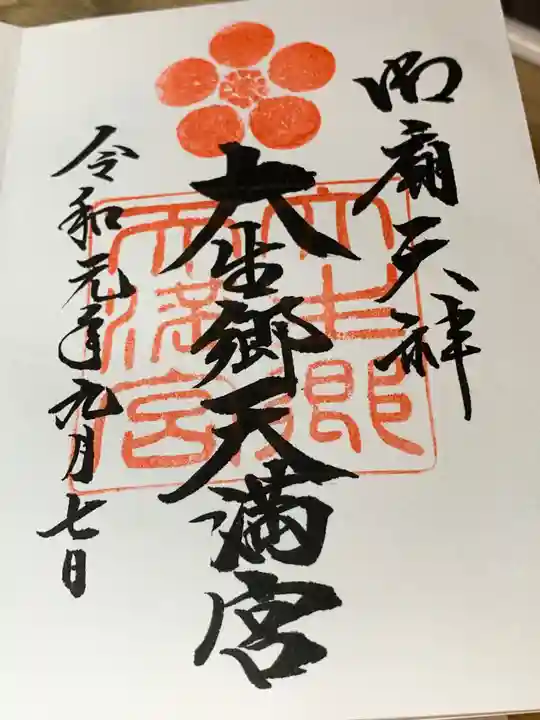 御廟天神
大生郷天満宮
令和元年九月七日
大生郷天満宮